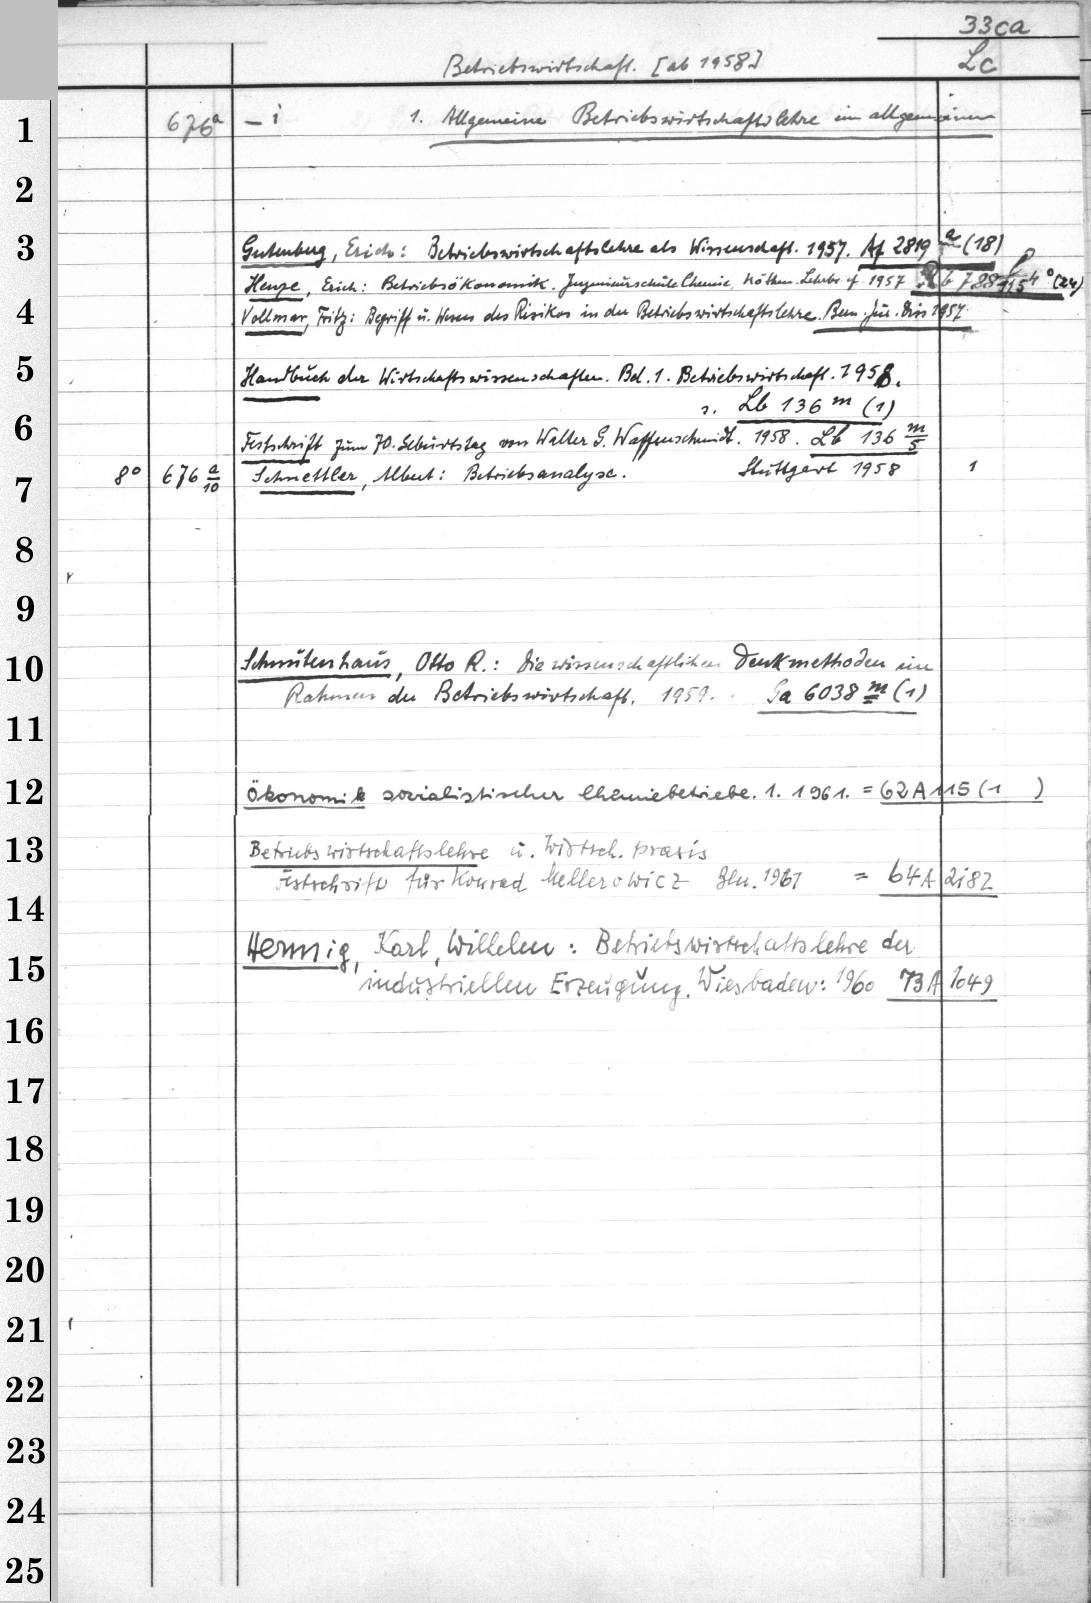 33ca
Betriebswirtschaft. [ab 1958] Lc
1 676a – i 1. Allgemeine Betriebswirtschaftslehre im allgemeinen
2
3 Gutenberg, Erich: Betriebswirtschaftslehre als Wissenschaft. 1957. Af 2819 a (18)
Henze, Erich: Betriebsökonomik. Ingenieurschule Chemie, Köthen. Lehrbr. 1957 4° (24)
4 Vollmar, Fritz: Begriff u. Wesen des Risikos in der Betriebswirtschaftslehre. Bern. Jur. Diss 1957.
5 Handbuch der Wirtschaftswissenschaften. Bd. 1. Betriebswirtschaft. 1958.
s. Lb 136 m (1)
6 Festschrift zum 70. Geburtstag von Walter G. Waffenschmidt. 1958. Lb 136 m/5
7 8° 676 a/10 Schnettler, Albert: Betriebsanalyse. Stuttgart 1958 1
8
9
10 Schnutenhaus, Otto R.: Die wissenschaftlichen Denkmethoden im
Rahmen der Betriebswirtschaft. 1959. Ga 6038 m (1)
11
12 Ökonomik sozialistischer Chemiebetriebe. 1. 1961. = 62 A 115 (1 )
13 Betriebswirtschaftslehre u. Wirtsch. praxis
Festschrift für Konrad Mellerowicz Bln. 1961 = 64 A 2182
14
15 Hennig, Karl, Wilhelm: Betriebswirtschaftslehre der
industriellen Erzeugung. Wiesbaden: 1960 73 A 1049
16
17
18
19
20
21
22
23
24
25